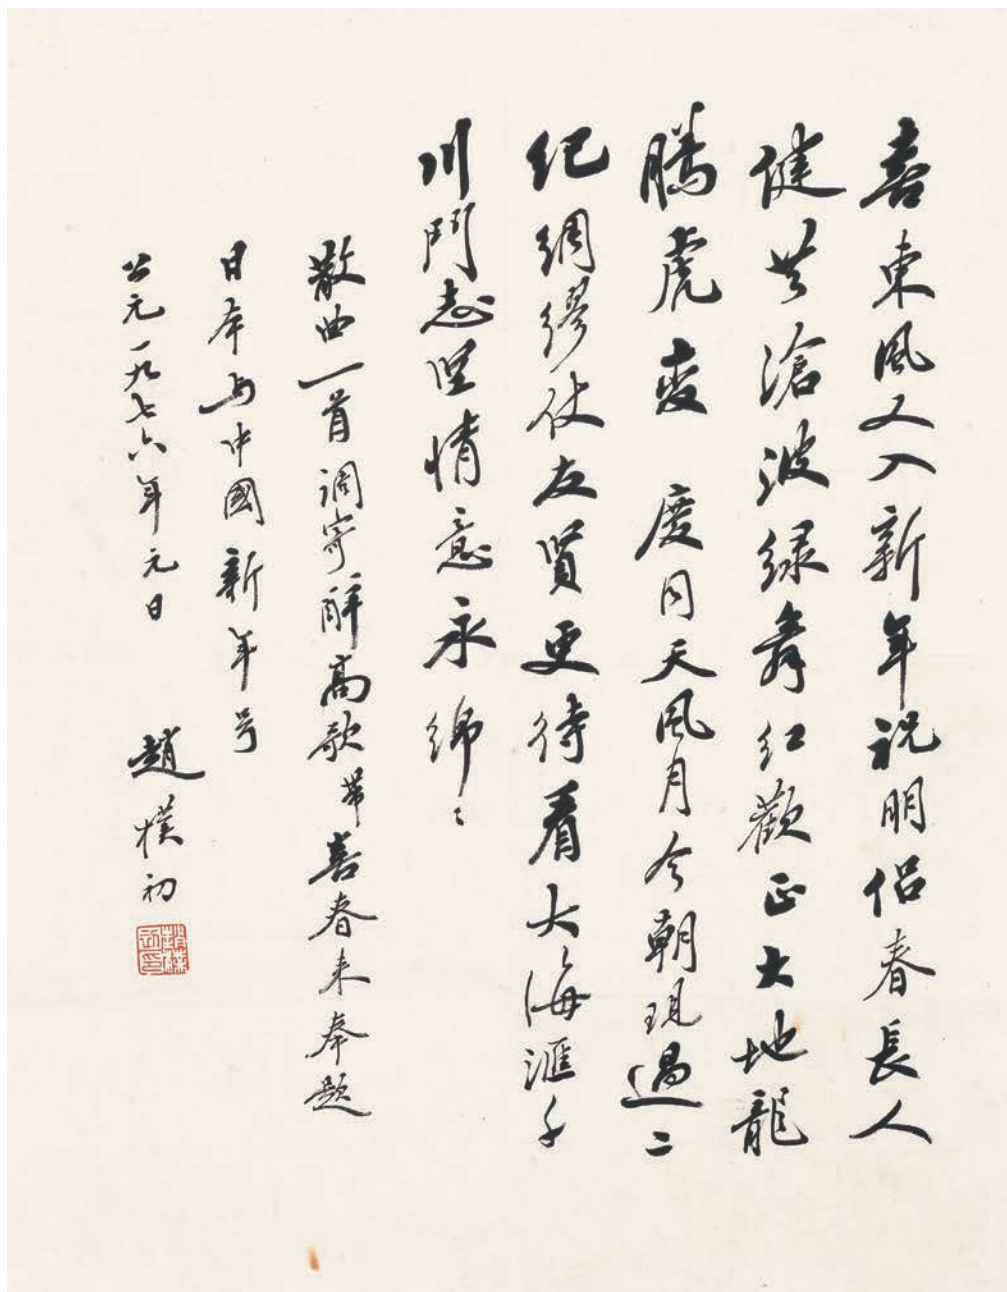 喜東風又入新年祝朋侣春長人
健共滄波绿舞红歡正大地龍
騰虎变 度同天風月今朝現過二
纪绸缪仗友贤更待看大海滙千
川鬥志坚情意永綿〻
散曲一首调寄醉高歌带喜春来奉题
日本与中國新年号
公元一九七六年元日 趙樸初
趙樸初印